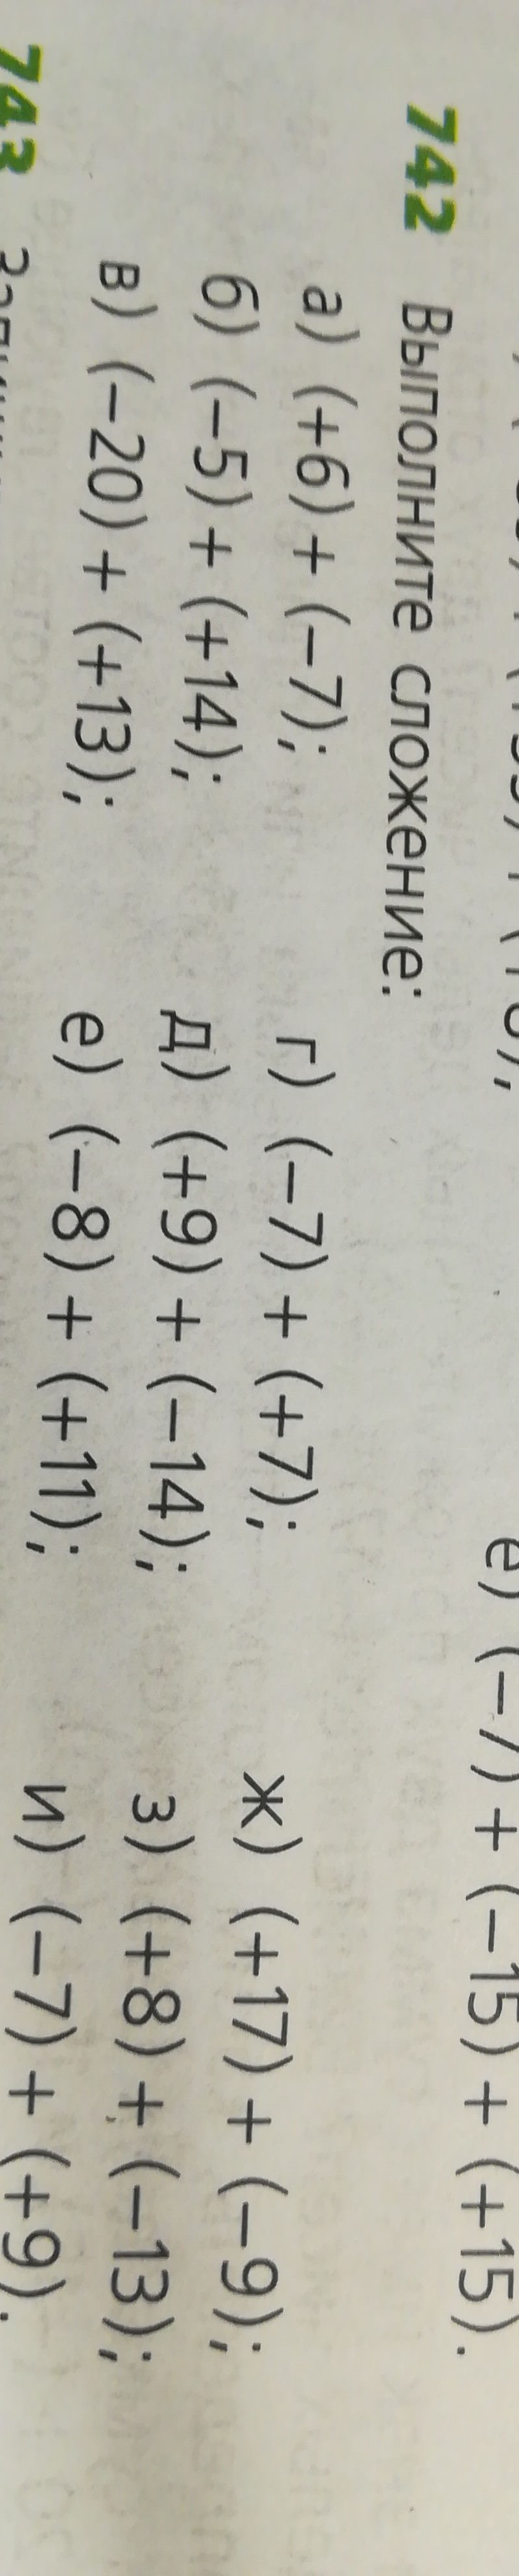 е) (−7) + (−15) + (+15).
742 Выполните сложение:
а) (+6) + (−7); г) (−7) + (+7); ж) (+17) + (−9);
б) (−5) + (+14); д) (+9) + (−14); з) (+8) + (−13);
в) (−20) + (+13); е) (−8) + (+11); и) (−7) + (+9).
743